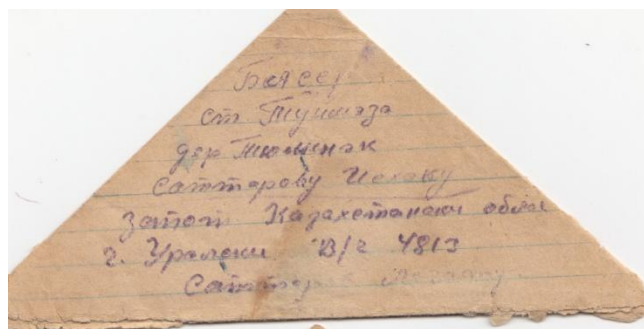 БАССР
ст Туймаза
дер Тюменяк
Саттарову Исхаку
Запот Казахстански обла
г. Уральски В/г 4813
Саттаров